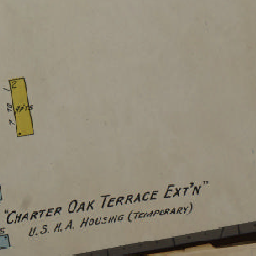 "CHARTER OAK TERRACE EXT'N"
U.S.H.A. HOUSING (TEMPORARY)